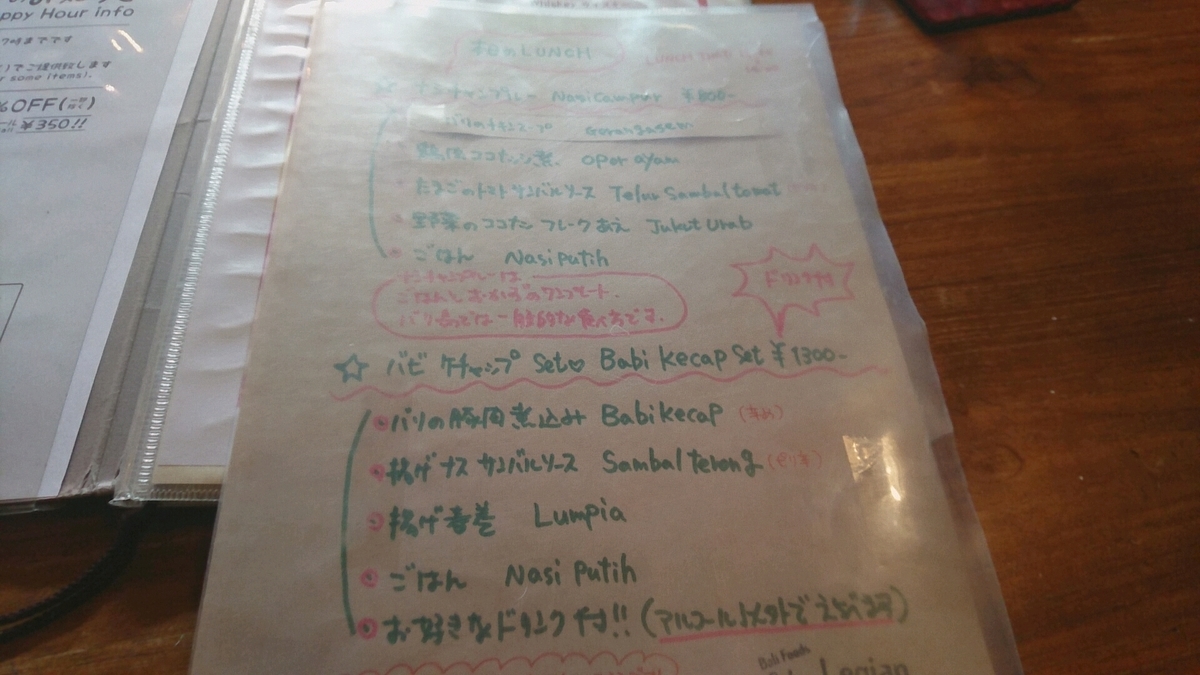 ppy Hour info
7時までです
)でご提供致します
r some items).
% OFF(一部除く)
¥350!!
本日のLUNCH
ナシチャンプルー Nasi Campur ¥800-
バリのチキンスープ Gerangasem
鶏肉ココナッツ煮 Opor ayam
たまごのトマトサンバルソース Telur Sambal tomat
野菜のココナッツフレークあえ Jukut Urab
ごはん Nasi putih
ナシチャンプルーは
ごはんとおかずのワンプレート.
バリ島では一般的な食べ方です.
ドリンク付
☆ バビ ケチャップ Set♡ Babi Kecap Set ¥1300-
バリの豚肉煮込み Babi Kecap (辛め)
揚げナス サンバルソース Sambal terong (ピリ辛)
揚げ春巻 Lumpia
ごはん Nasi Putih
お好きなドリンク付!! (アルコール以外でえらべます)
Bali Foods
Legian